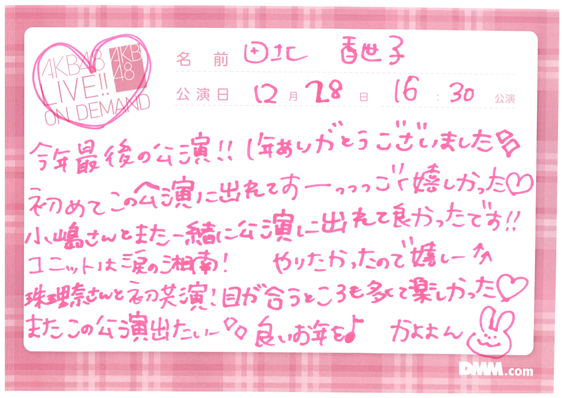 AKB48 LIVE!! ON DEMAND
AKB48
名前 田北 香世子
公演日 12月28日 16:30公演
今年最後の公演!! 1年ありがとうございました
初めてこの公演に出れてすーっっっごく嬉しかった♡
小嶋さんとまた一緒に公演に出れて良かったです!!
ユニットは涙の湘南! やりたかったので嬉しー
珠理奈さんと初共演!目が合うところも多くて楽しかった♡
またこの公演出たいー 良いお年を♪ かよよん
DMM.com